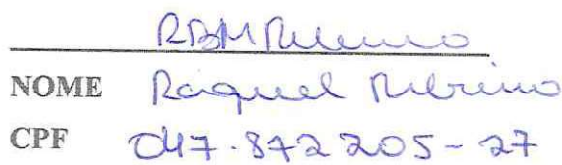 RBM Ribeiro
NOME Raquel Ribeiro
CPF 047.872205-27